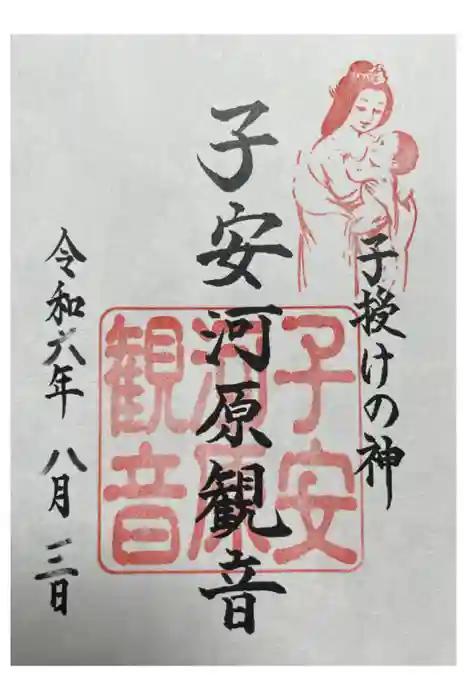 子授けの神
子安河原観音
子安
河原
観音
令和六年 八月 三日